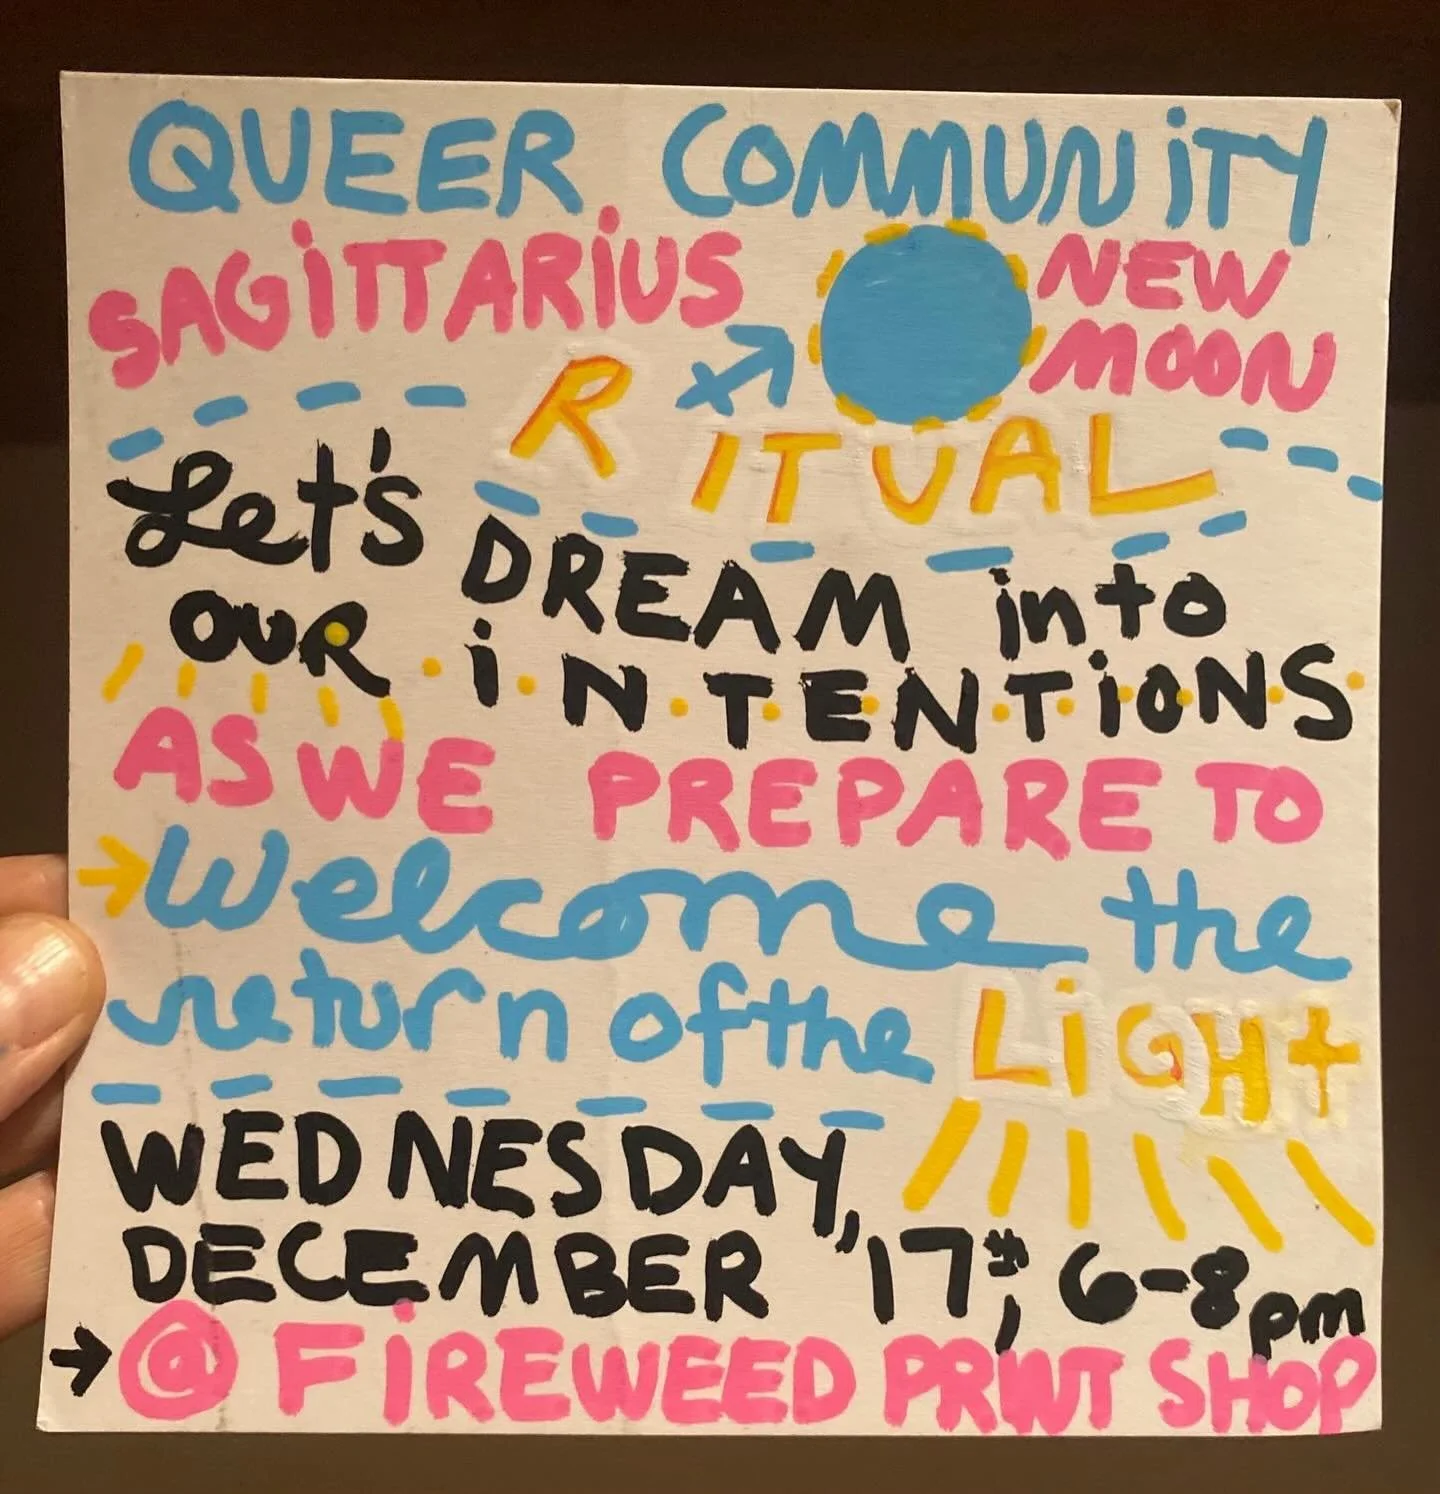 QUEER COMMUNITY
SAGITTARIUS NEW
MOON
RITUAL
Let's DREAM into
OUR INTENTIONS
AS WE PREPARE TO
→ Welcome the
return of the LIGHt
WEDNESDAY,
DECEMBER 17th, 6-8pm
→ @ FIREWEED PRINT SHOP